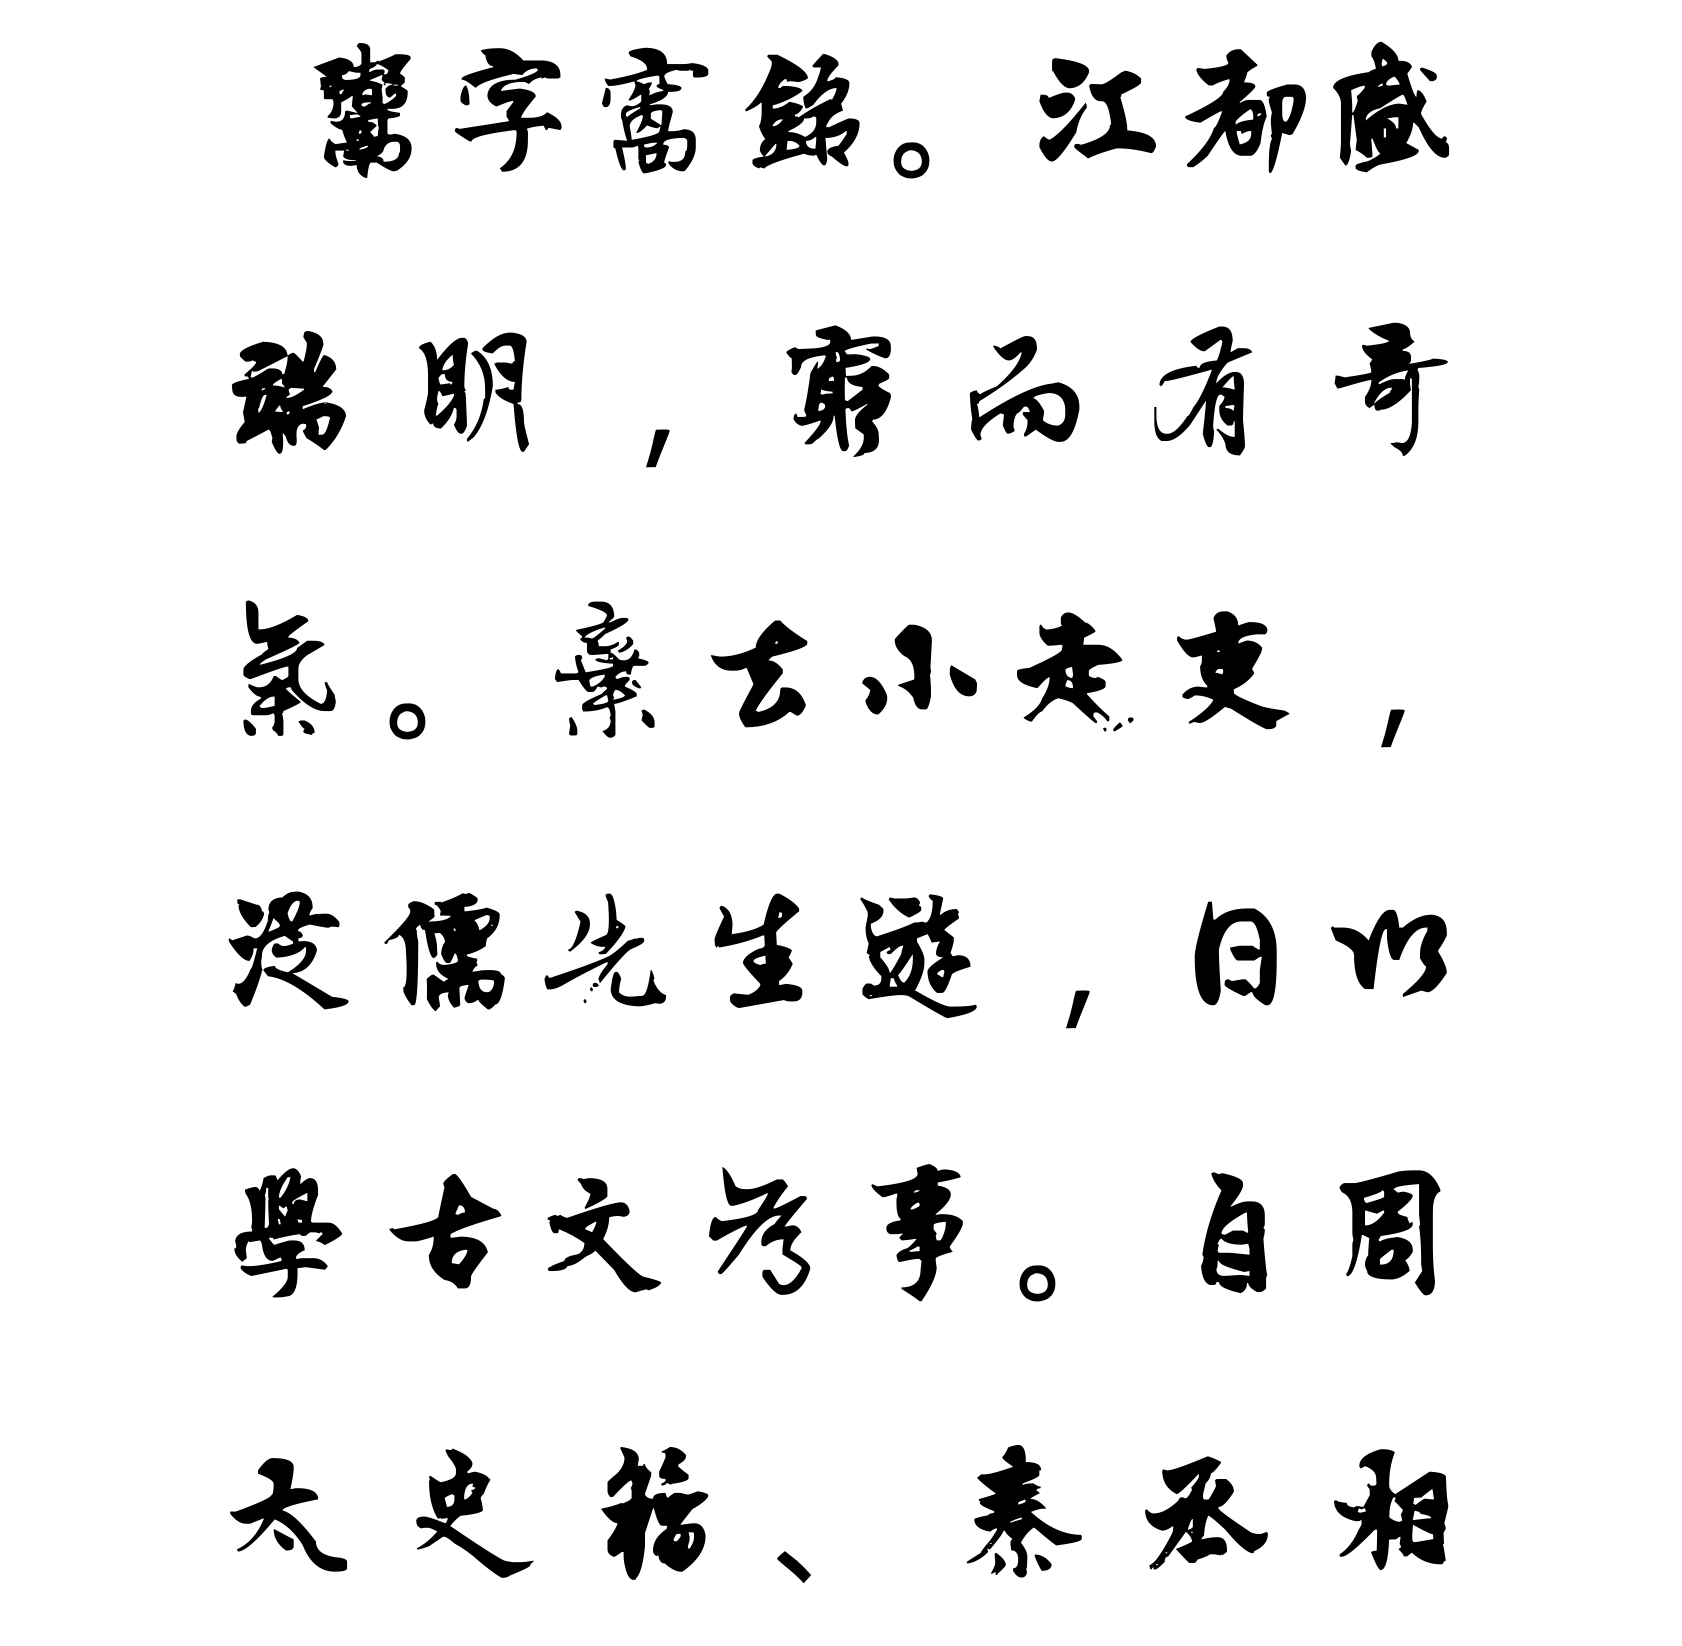 鬻字窩銘。江都盛
端明,窮而有奇
氣。棄去小走吏,
從儒先生遊,日以
學古文考事。自周
太史籀、秦丞相